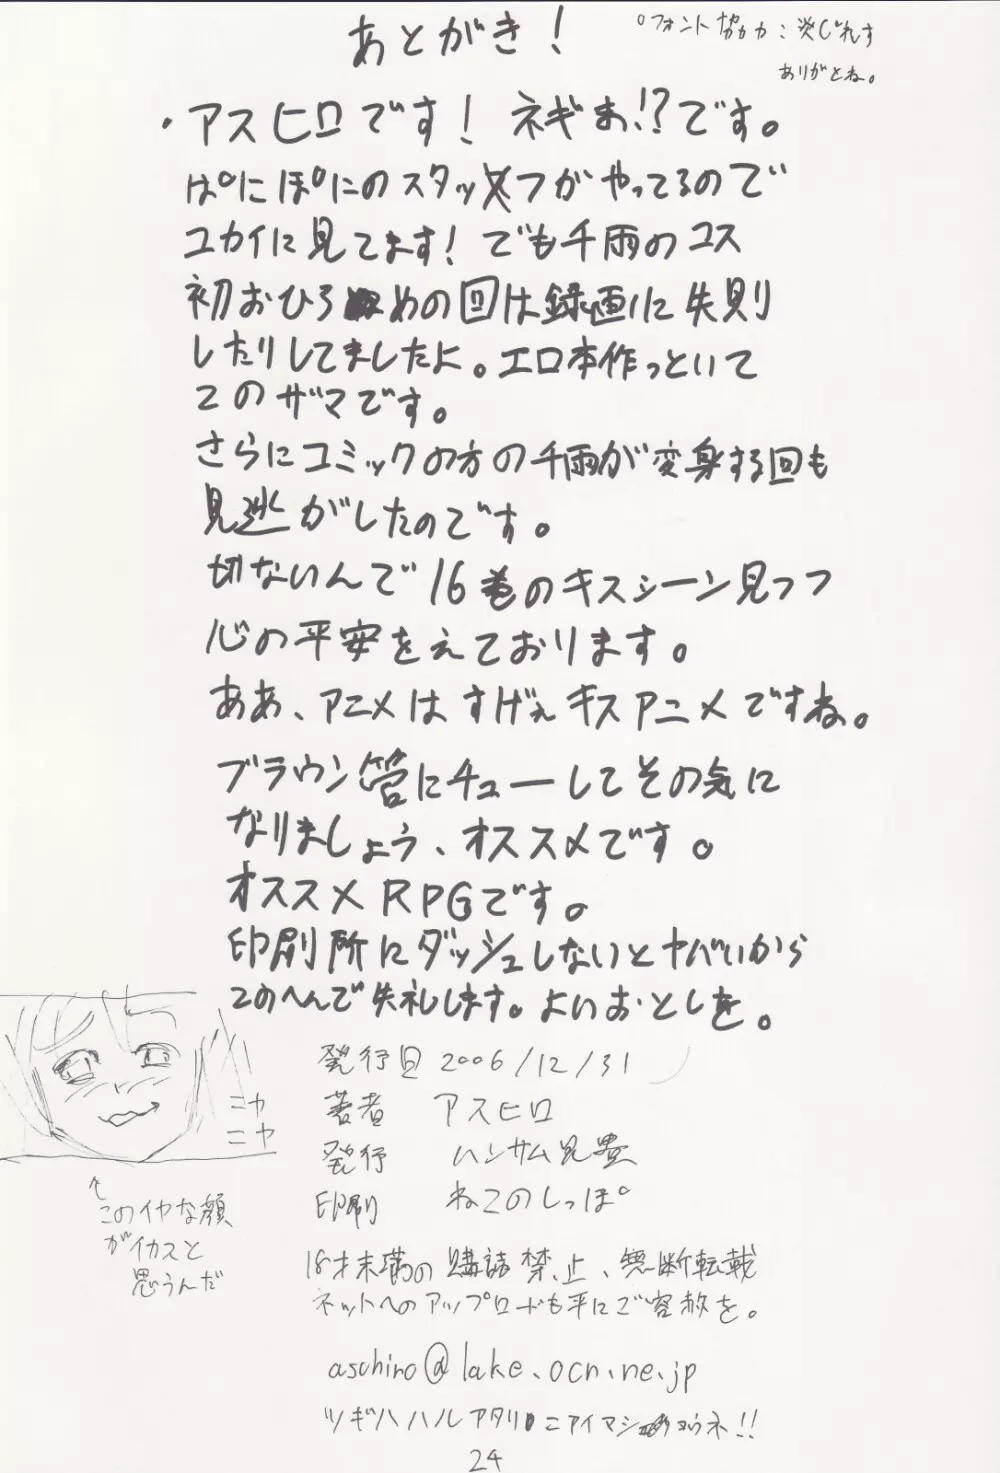 あとがき!
○フォント協力:炎じれす
ありがとね。
・アスヒロです! ネギま!?です。
ぱにぽにのスタッフがやってるので
ユカイに見てます! でも千雨のコス
初おひろめの回は録画に失則
したりしてましたよ。エロ本作っといて
このザマです。
さらにコミックの方の千雨が変身する回も
見逃がしたのです。
切ないんで16巻のキスシーン見つつ
心の平安をえております。
ああ、アニメはすげぇキスアニメですね。
ブラウン管にチューしてその気に
なりましょう、オススメです。
オススメRPGです。
印刷所にダッシュしないとヤバいから
このへんで失礼します。よいおとしを。
ニヤ
ニヤ
↑
このイヤな顔
がイカスと
思うんだ
発行日 2006/12/31
著者 アスヒロ
発行 ハンサム兄貴
印刷 ねこのしっぽ
18才末満の購読禁止、無断転載
ネットへのアップロードも平にご容赦を。
aschiro@lake.ocn.ne.jp
ツギハハルアタリニアイマショウネ!!
24